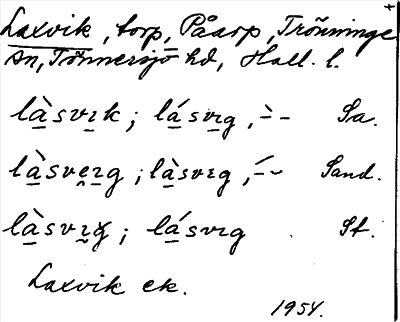 Laxvik, torp, Påarp, Trönninge
sn, Tönnersjö hd, Hall. l.
là̱svɪ̱k; lá̱svɪ̱g, `-- Sa.
là̱sve̱ɪ̱g; là̱svɪg, ´-~ Sand.
là̱svɪ̱ɣ; lá̱svɪg St.
Laxvik ek.
1954.